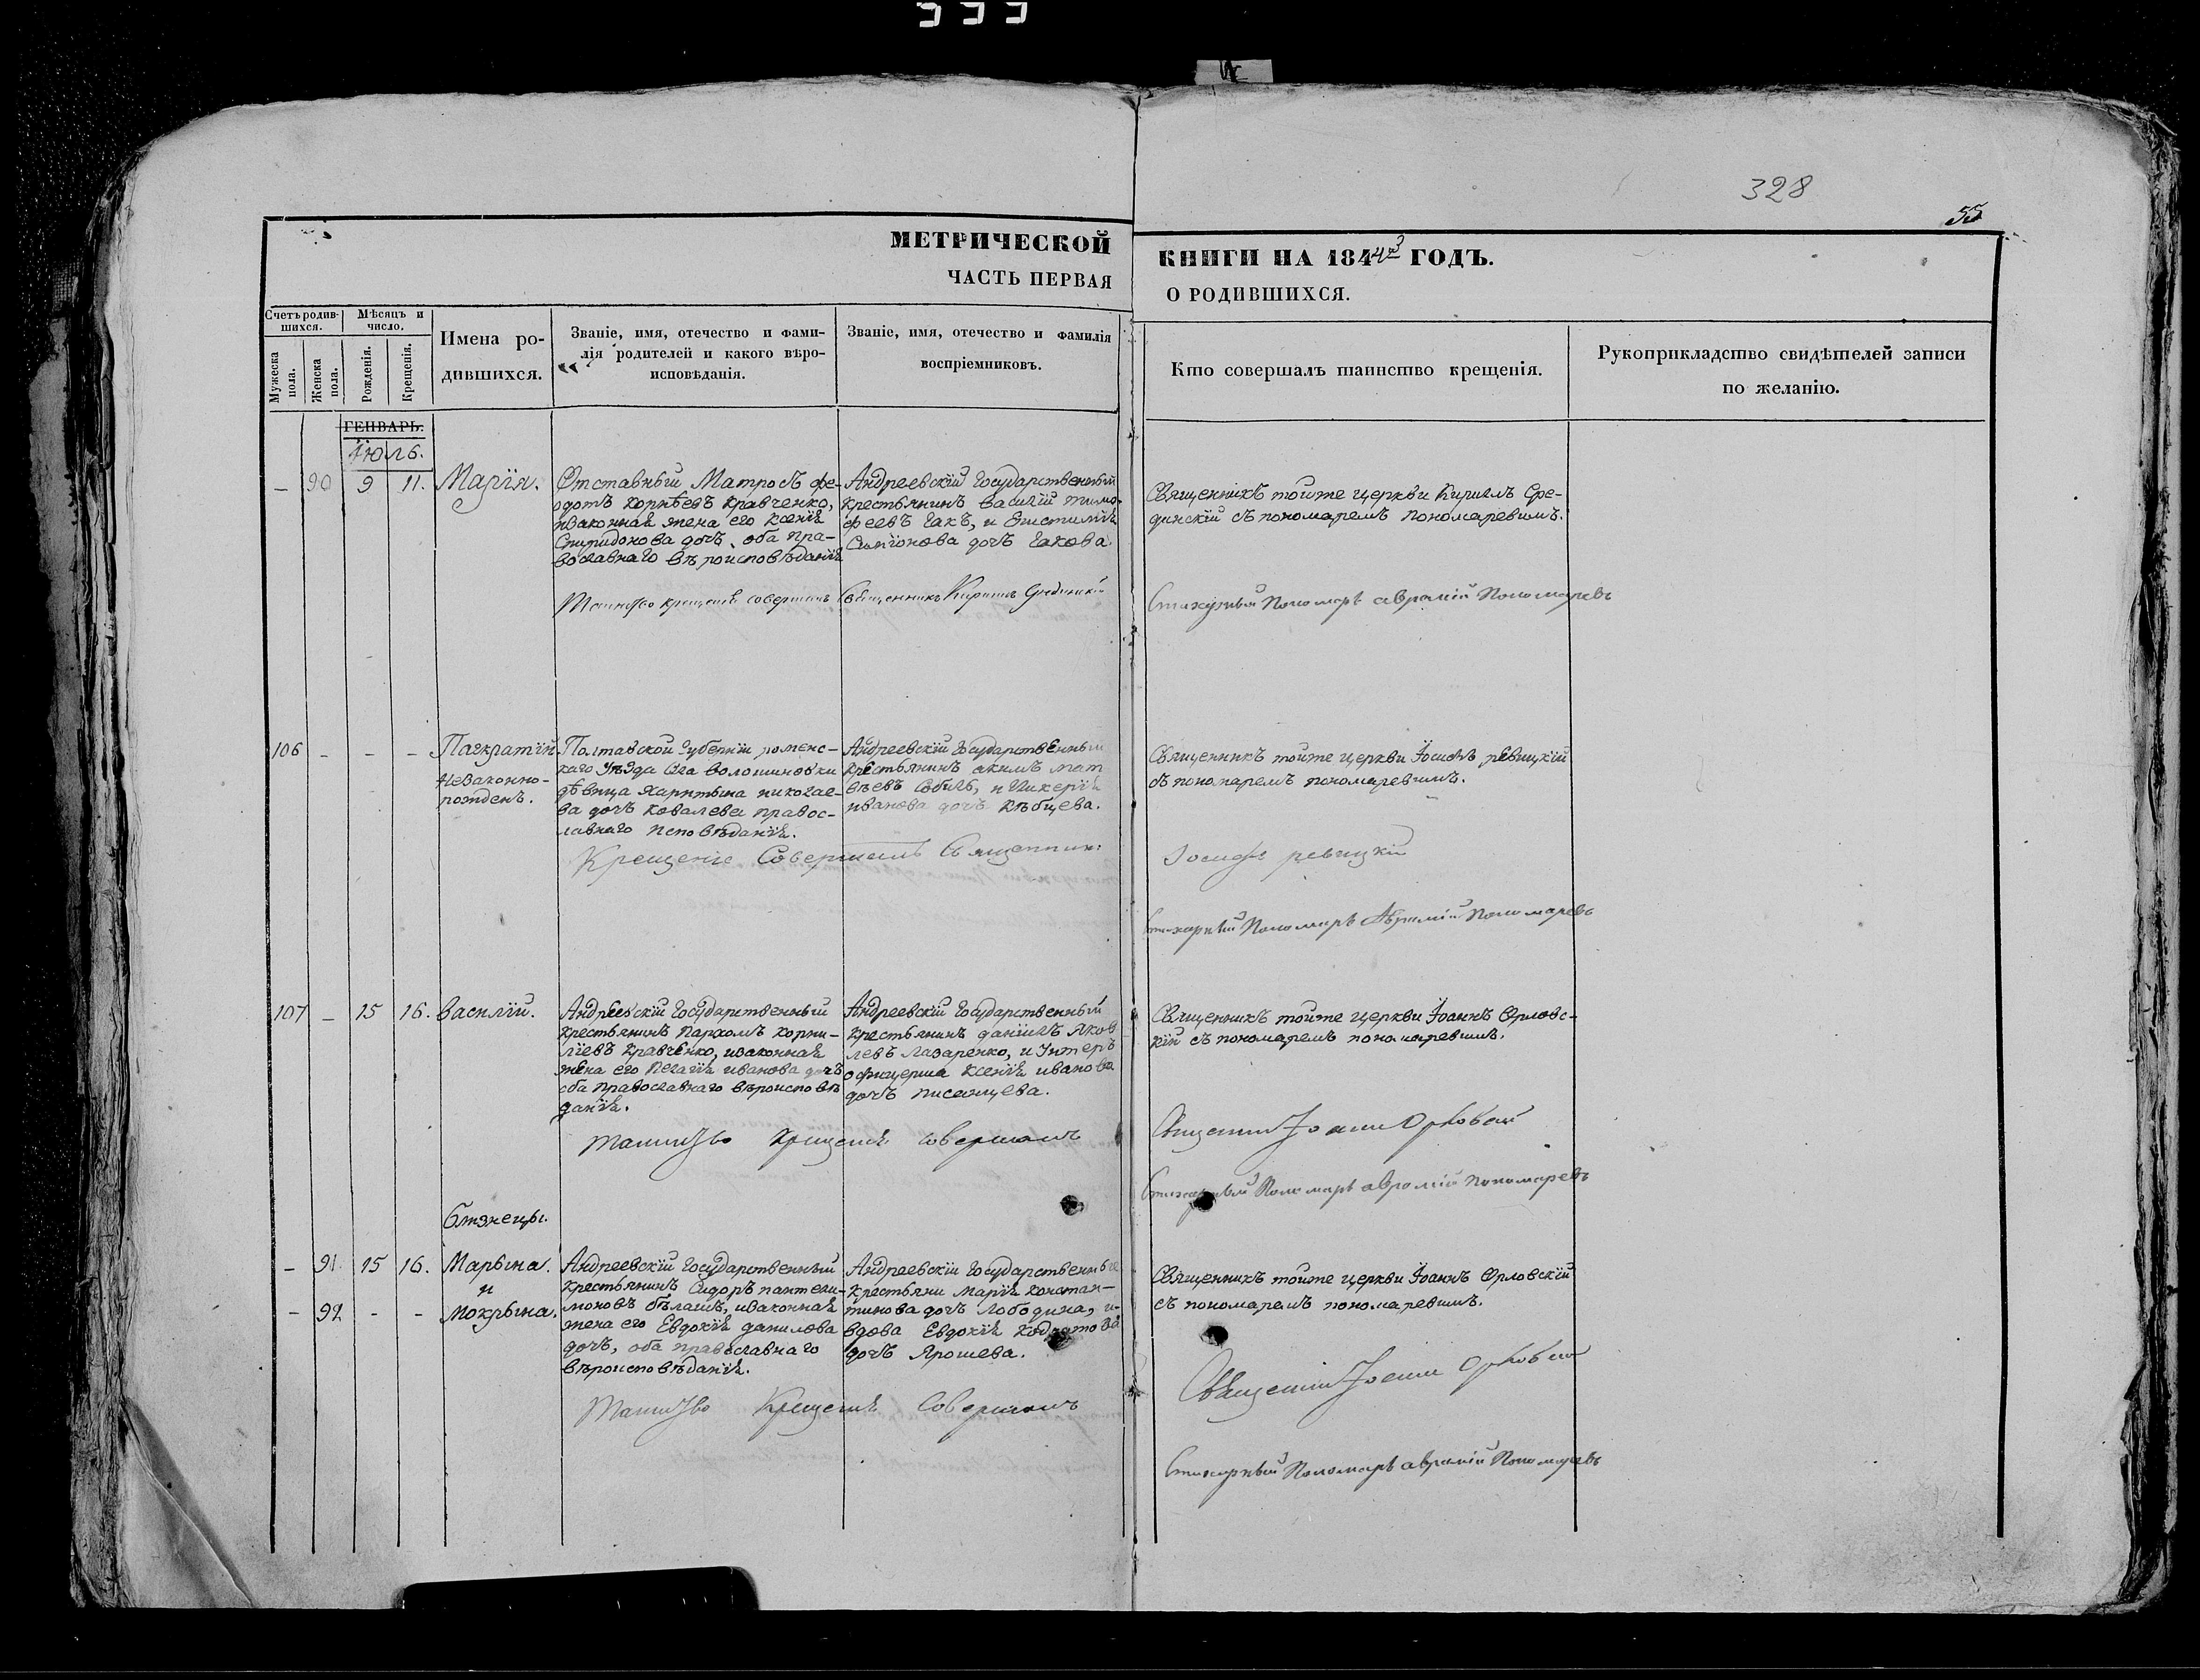 328
55
МЕТРИЧЕСКОЙ
ЧАСТЬ ПЕРВАЯ
КНИГИ НА 1843 ГОДЪ.
О РОДИВШИХСЯ.
Счетъ родив-
шихся.
Мѣсяцъ и
число.
Мужеска
пола.
Женска
пола.
Рожденія.
Крещенія.
Имена ро-
дившихся.
Званіе, имя, отечество и фами-
лія родителей и какого вѣро-
исповѣданія.
Званіе, имя, отечество и фамилія
воспріемниковъ.
Кто совершалъ таинство крещенія.
Рукоприкладство свидѣтелей записи
по желанію.
ГЕНВАРЬ.
Іюль.
— 90 9 11. Марія.
Отставный Матросъ Фе-
дотъ Корнѣевъ Кравченко,
изаконная жена его Ксенія
Спиридонова дочь, оба пра-
вославнаго вѣроисповѣданія
Андреевскій Государственный
крестьянинъ Василій Тимо-
феевъ Гакъ, и Епистимія
Симіонова дочь Гакова.
Священникъ тойже церкви Кириллъ Сре-
динскій съ пономаремъ Пономаревымъ.
Таинство крещенія совершалъ Священникъ Кириллъ Срединскій
Стихарный Пономарь Аврамій Пономаревъ
106 — — — Панкратій
Незаконно-
рожденъ.
Полтавской губерніи роменс-
каго уѣзда села Волошиновки
дѣвица Харитына Николае-
ва дочь Ковалева правос-
лавнаго исповѣданія.
Андреевскій Государственный
крестьянинъ Акимъ Мат
вѣевъ Собиль, и Гликерія
Иванова дочь
Священникъ тойже церкви Іосифъ Ревицкій
съ пономаремъ пономаревымъ.
Крещеніе Совершалъ Священник:
Іосифъ Ревицкій
Стихарный Пономарь Аврамій Пономаревъ
107 — 15 16. Василій.
Андреевскій Государственный
крестьянинъ Пархомъ Корни-
ліевъ Кравченко, изаконная
жена его Пелагія Иванова дочь
оба православнаго вѣроисповѣ
данія.
Андреевскій Государственный
крестьянинъ Даніилъ Яков
левъ Лазаренко, и Унтеръ
офицерша Ксенія Иванова
дочь Писанцева.
Священникъ тойже церкви Іоаннъ Орловс-
кій съ пономаремъ пономаревымъ.
Таинство Крещенія совершалъ
Священник Іоанн Орловскій
Стихарный Пономарь Аврамій Пономаревъ
Близнецы.
— 91. 15 16. Марына.
и
— 92 — — Мокрына.
Андреевскій Государственный
крестьянинъ Сидоръ Пантели-
моновъ Бѣлашъ, изаконная
жена его Евдокія Данилова
дочь, оба православнаго
вѣроисповѣданія.
Андреевскіи Государственные
крестьяни Марія Констан-
тинова дочь Лободина, и
вдова Евдокія Кодратова
дочь Ярошева.
Священникъ тойже церкви Іоаннъ Орловскій
съ пономаремъ пономаревымъ.
Таинство Крещенія Совершалъ
Священник Іоанн Орловскій
Стихарный Пономарь Аврамій Пономаревъ